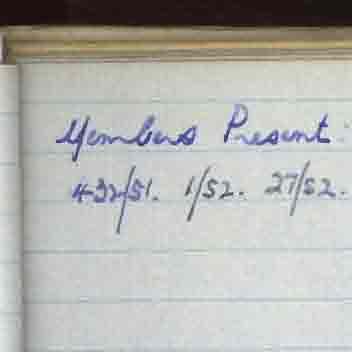 Members Present:
432/51. 1/52. 27/52.